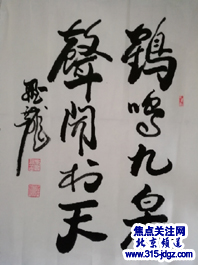 鹤鸣九皋
聲闻于天
龍
焦点关注网
北京频道
www.315-jdgz.com